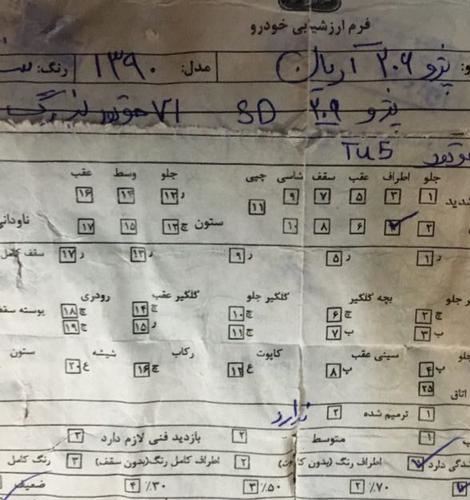 فرم ارزشیابی خودرو
پژو ۲۰۶ آریان مدل: ۱۳۹۰ رنگ:
پژو ۲۰۶ SD V1 موتور بزرگ
موتور TU5
جلو اطراف عقب سقف شاسی چپی جلو وسط عقب
۱ ۳ ۵ ۷ ۹ ۱۱ ر ۱۲ ۱۴ ۱۶
۲ ۶ ۸ ۱۰ ستون چ ۱۳ ۱۵ ۱۷ ناودانی
ر ۱ ر ۵ ر ۹ ر ۱۳ ر ۱۷ سقف کامل
جلو بچه گلگیر گلگیر جلو گلگیر عقب رودری
چ ۲ چ ۶ چ ۱۰ چ ۱۴ چ ۱۸ پوسته سقف
پ ۳ پ ۷ چ ۱۱ ر ۱۵ چ ۱۹
جلو سینی عقب کاپوت رکاب شیشه ستون
پ ۴ پ ۸ ع ۱۲ چ ۱۶ ع ۲۰
اتاق ۲۵
۱ ترمیم شده ۲ ندارد
۱ متوسط ۲ بازدید فنی لازم دارد ۳
دارد اطراف رنگ (بدون کاپوت) ۲ اطراف کامل رنگ (بدون سقف) ۳ رنگ کامل
٪۷۰ ۲ ٪۵۰ ۳ ٪۳۰ ۴ ضعیف